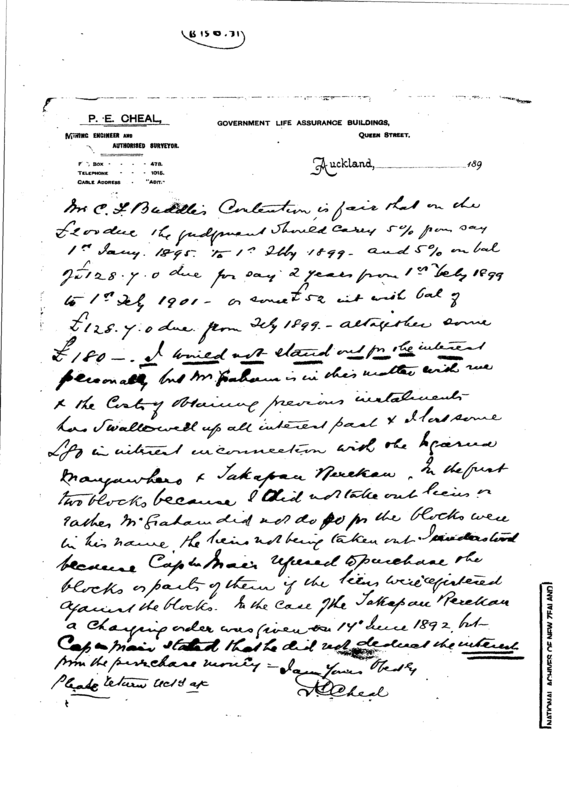 (B 150.31)
P. E. CHEAL,
MINING ENGINEER AND
AUTHORISED SURVEYOR.
BOX - - - 478.
TELEPHONE - - - 1015.
CABLE ADDRESS - "ADIT."
GOVERNMENT LIFE ASSURANCE BUILDINGS,
QUEEN STREET,
Auckland, 189
Mr C. F. Buddle's Contention is fair that on the
due the judgment should carry 5% from say
1st Jany. 1895. to 1st Feby 1899 - and 5% on bal
of £128. 7. 0 due for say 2 years from 1st Feby 1899
to 1st Feby 1901 - or some £52 int with bal of
£128. 7. 0 due from Feby 1899 - altogether some
£180 -. I would not stand out for the interest
personally but Mr Graham is in this matter with me
& the Costs of obtaining previous instalments
has swallowed up all interest past & I lost some
£80 in interest in connection with the
Mangawhero & Takapau Rerekau. In the first
two blocks because I did not take out liens or
rather Mr Graham did not do so for the blocks were
in his name, the liens not being taken out I understood
because Captn Mair refused to purchase the
blocks or parts of them if the liens were registered
against the blocks. In the case of the Takapau Rerekau
a Charging order was given on 14th June 1892 but
Captn Mair stated that he did not deduct the interest
from the purchase money - I am Yours Obedly
Please return
P E Cheal
NATIONAL ARCHIVES OF NEW ZEALAND